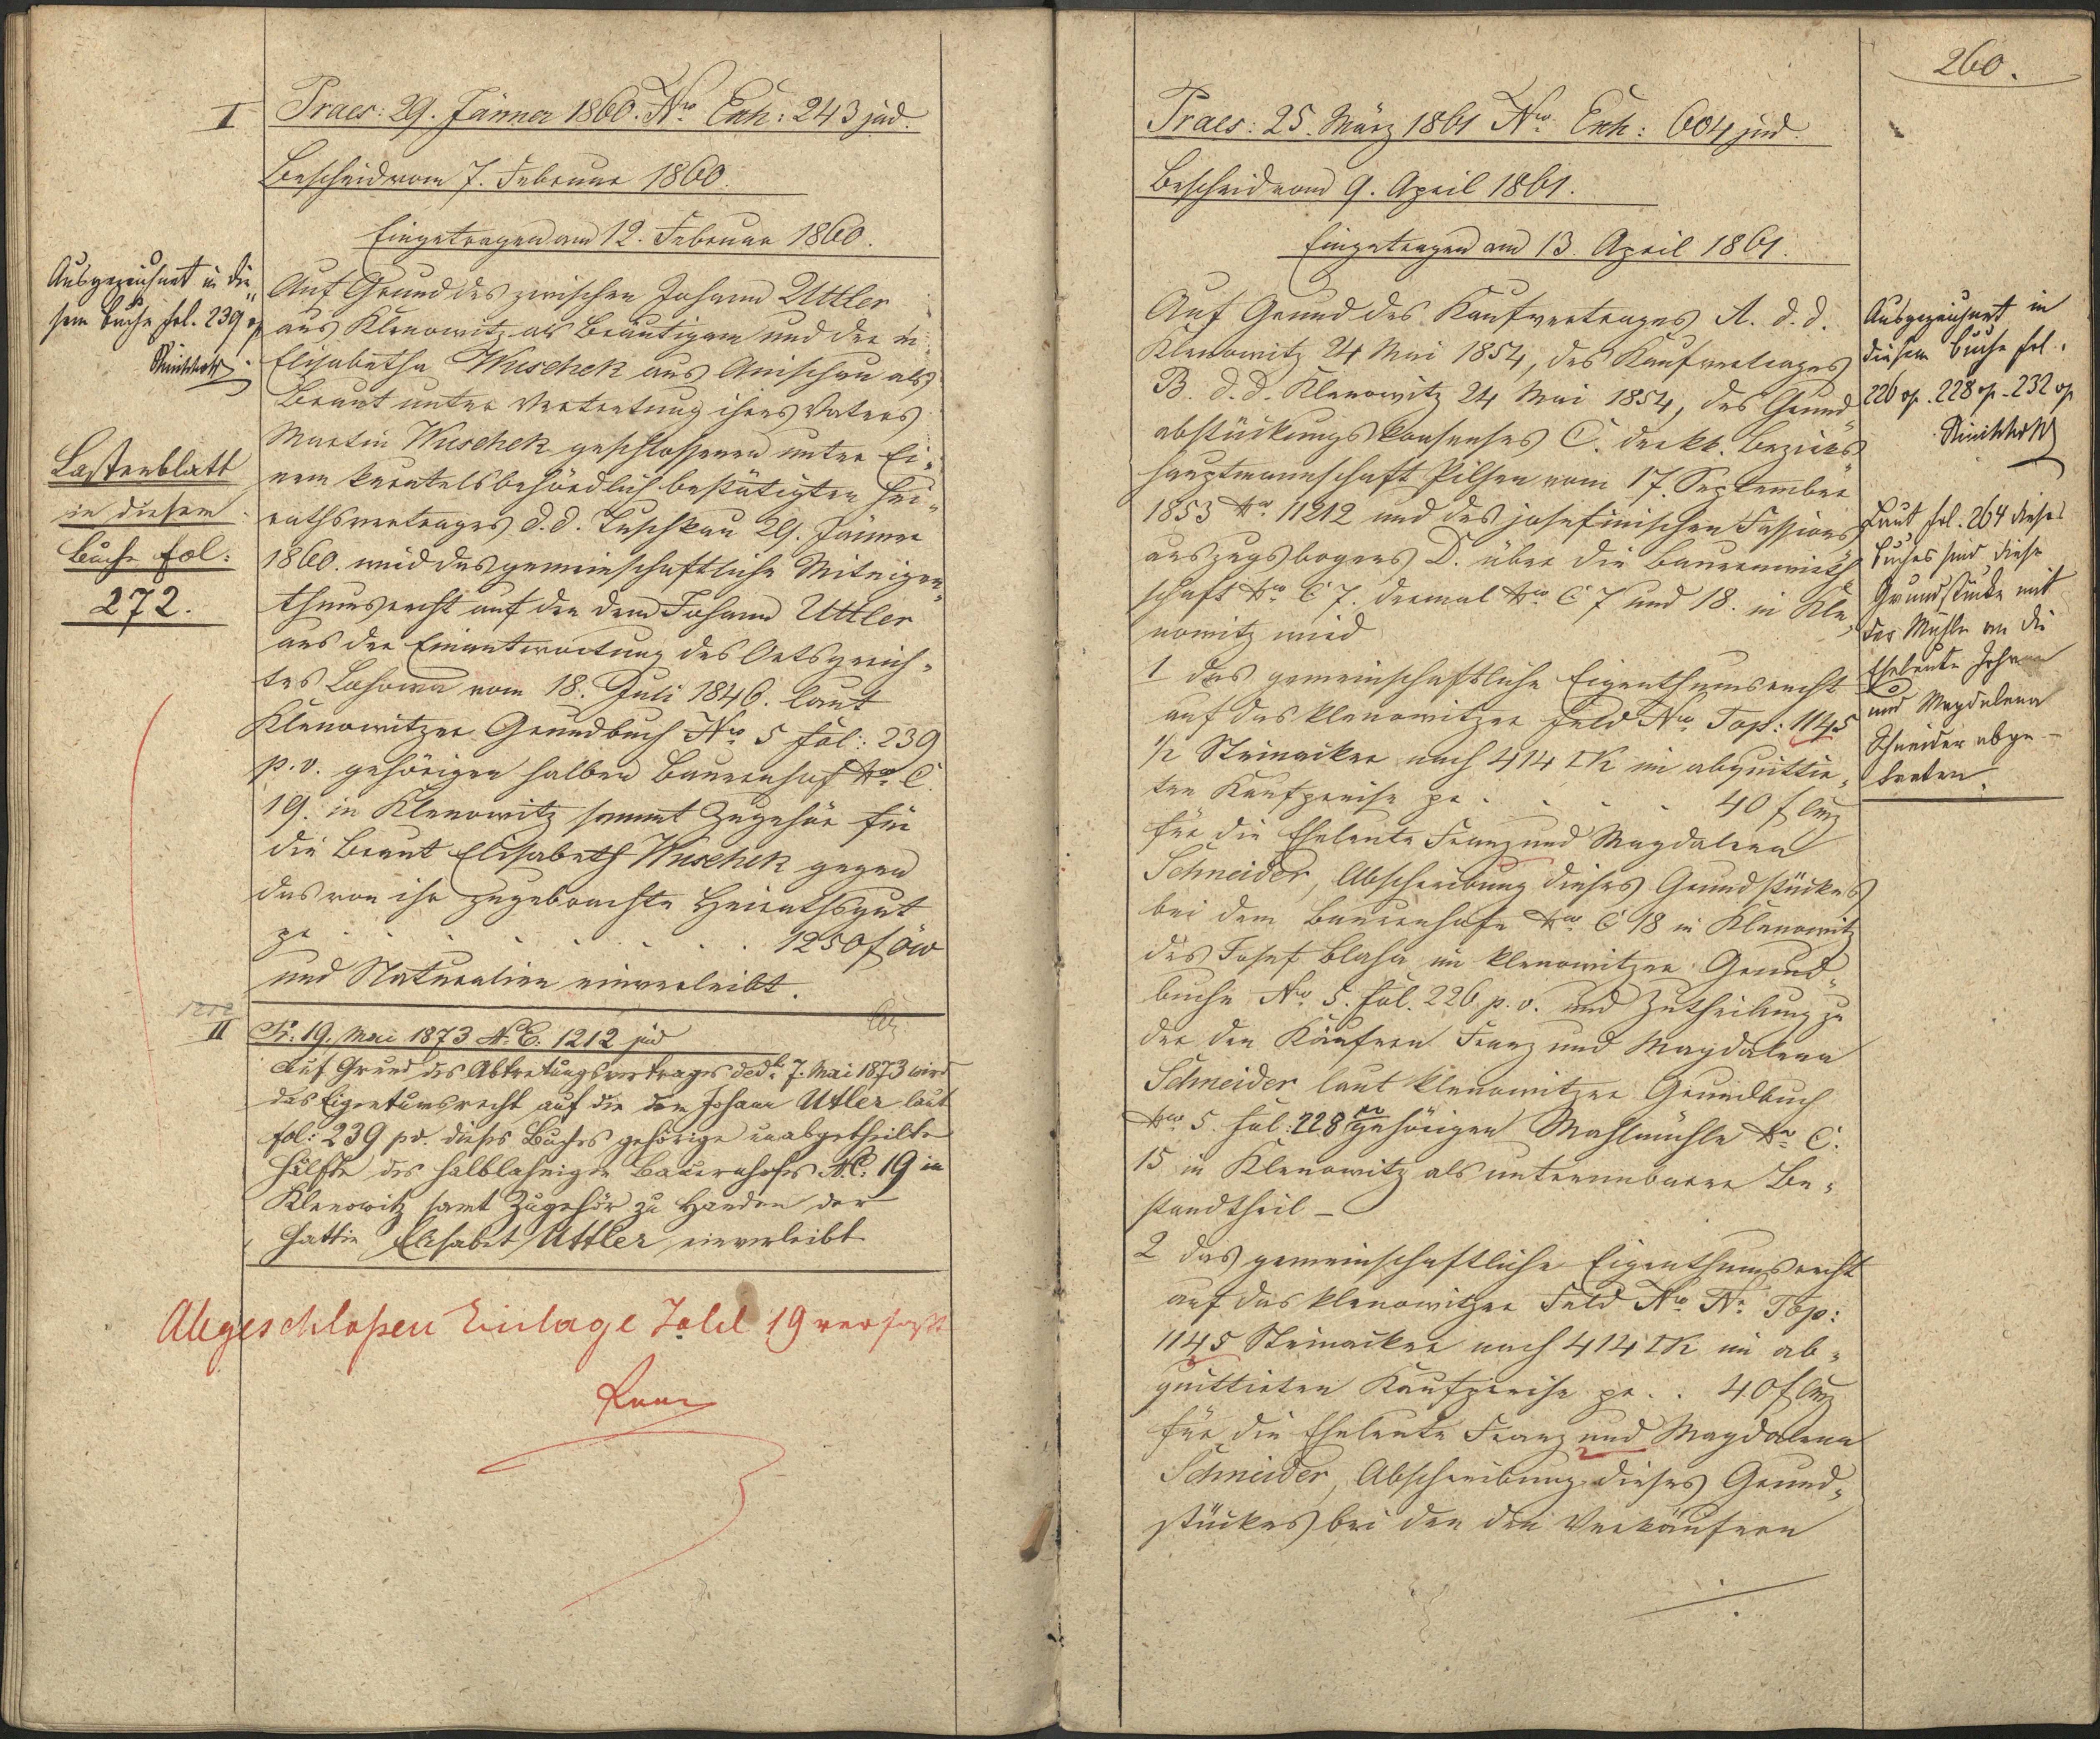 I
Praes: 29. Jänner 1860. Nro Exh: 243 jud.
Bescheid vom 7. Februar 1860.
Eingetragen am 12. Februar 1860.
Ausgezeichnet in die„
sem Buche fol. 239
Lastenblatt
in diesem
Buche fol:
272.
Auf Grund des zwischen Johann Uttler
aus Klenowitz als Bräutigam und der
Elisabetha Wuschek aus Anischau als
Braut unter Vertretung ihres Vaters
Martin Wuschek geschlossenen unter Ei„
nem kuratelsbehördlich bestätigten Hei„
rathsvertrages d. d. Tuschkau 29. Jänner
1860. wird das gemeinschaftliche Miteigen„
thumsrecht auf den dem Johann Uttler
aus der Einantwortung des Ortsgerich„
tes Lohowa vom 18. Juli 1846. laut
Klenowitzer Grundbuch Nro 5 fol: 239
p. v. gehörigen halben Bauernhof Nro C.
19. in Klenowitz sammt Zugehör für
die Braut Elisabeth Wuschek gegen
das von ihr zugebrachte Heirathsgut
pr . . . . . . . 1250 f öw
und Naturalien einverleibt.
II
Pr: 19. Mai 1873 N. E. 1212 jud
Auf Grund des Abtretungsvertrages ddto 7. Mai 1873 wird
das Eigentumsrecht auf die dem Johann Uttler laut
fol: 239 pv. dieses Buches gehörige unabgetheilte
Hälfte des halblahnigen Bauernhofes N.C. 19 in
Klenowitz samt Zugehör zu Handen der
Gattin Elisabet Uttler einverleibt
Abgeschlossen Einlage Zahl 19 verfasst
260.
Praes: 25. März 1861 Nro Exh: 604 jud.
Bescheid vom 9. April 1861.
Eingetragen am 13. April 1861.
Auf Grund des Kaufvertrages A. d. d.
Klenowitz 24 Mai 1854, des Kaufvertrages
B. d. d. Klenowitz 24 Mai 1854, des Grund„
abstückungskonsenses C. der kk. Bezirks„
hauptmannschaft Pilsen vom 17. September
1853 Nro 11212 und des josefinischen Fassions„
auszugsbogens D. über die Bauernwirth„
schaft Nro C 7. dermal Nro C 7 und 18. in Kle„
nowitz wird
1 das gemeinschaftliche Eigenthumsrecht
auf das klenowitzer Feld Nro Top: 1145
1/2 Steinacker nach 414 □K im abquittir„
ten Kaufpreise pr . . . . 40 f CMz
für die Eheleute Franz und Magdalena
Schneider, Abschreibung dieses Grundstückes
bei dem Bauernhofe Nro C 18 in Klenowitz
des Josef Blaha im klenowitzer Grund„
buche Nro 5. fol. 226 p. v. und Zutheilung zu
der den Käufern Franz und Magdalena
Schneider laut klenowitzer Grundbuch
Nro 5. fol: 228 pv gehörigen Mahlmühle Nro C.
15 in Klenowitz als untrennbarer Be„
standtheil –
2 das gemeinschaftliche Eigenthumsrecht
auf das klenowitzer Feld Nro Top:
1145 Steinacker nach 414 □K im ab„
quittirten Kaufpreise pr . . 40 f CMz
für die Eheleute Franz und Magdalena
Schneider, Abschreibung dieses Grund„
stückes bei den den Verkäufern
Ausgezeichnet in
diesem Buche fol.
226 . 228 . 232
Laut fol. 264 dieses
Buches sind diese
Grundstücke mit
der Mühle an die
Eheleute Johann
und Magdalena
Schneider abge–
treten.